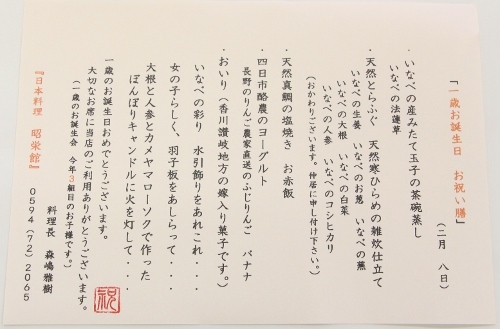 「一歳お誕生日　お祝い膳」
（二月　八日）
・いなべの産みたて玉子の茶碗蒸し
いなべの法蓮草
・天然とらふぐ　天然寒ひらめの雑炊仕立て
いなべの生姜　いなべのお葱　いなべの蕪
いなべの大根　いなべの白菜
いなべの人参　いなべのコシヒカリ
（おかわりございます。仲居に申し付け下さい。）
・天然真鯛の塩焼き　お赤飯
・四日市酪農のヨーグルト
長野のりんご農家直送のふじりんご　バナナ
・おいり（香川讃岐地方の嫁入り菓子です。）
いなべの彩り　水引飾りをあれこれ・・・
女の子らしく、羽子板をあしらって・・・・
大根と人参とカメヤマローソクで作った
ぼんぼりキャンドルに火を灯して・・・・
一歳のお誕生日おめでとうございます。
大切なお席に当店のご利用ありがとうございます。
（一歳のお誕生会　今年３組目のお子様です。）
料理長　森嶋雅樹
『日本料理　昭栄館』
０５９４（７２）２０６５
祝